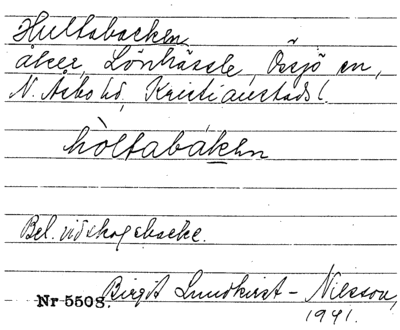 Hultabacken
åker, Lönhässle, Össjö sn,
N. Åsbo hd, Kristianstads l.
hòltabáken
Bel. vid skogsbacke.
Nr 5508. Birgit Lundkvist-Nilsson,
1941.